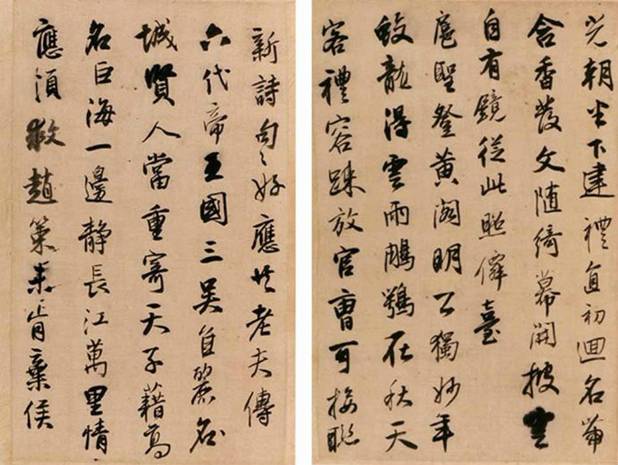 光朝半下建禮直初迴名笋
含香發文隨綺幕開披雲
自有鏡從此照僊臺
扈聖登黃閣明公獨妙年
蛟龍得雲雨鵰鶚在秋天
客禮容踈放官曹可接聯
新詩句々好應任老夫傳
六代帝王國三吳自麗名
城賢人當重寄天子藉高
名巨海一邊靜長江萬里情
應須救趙策未肯棄侯